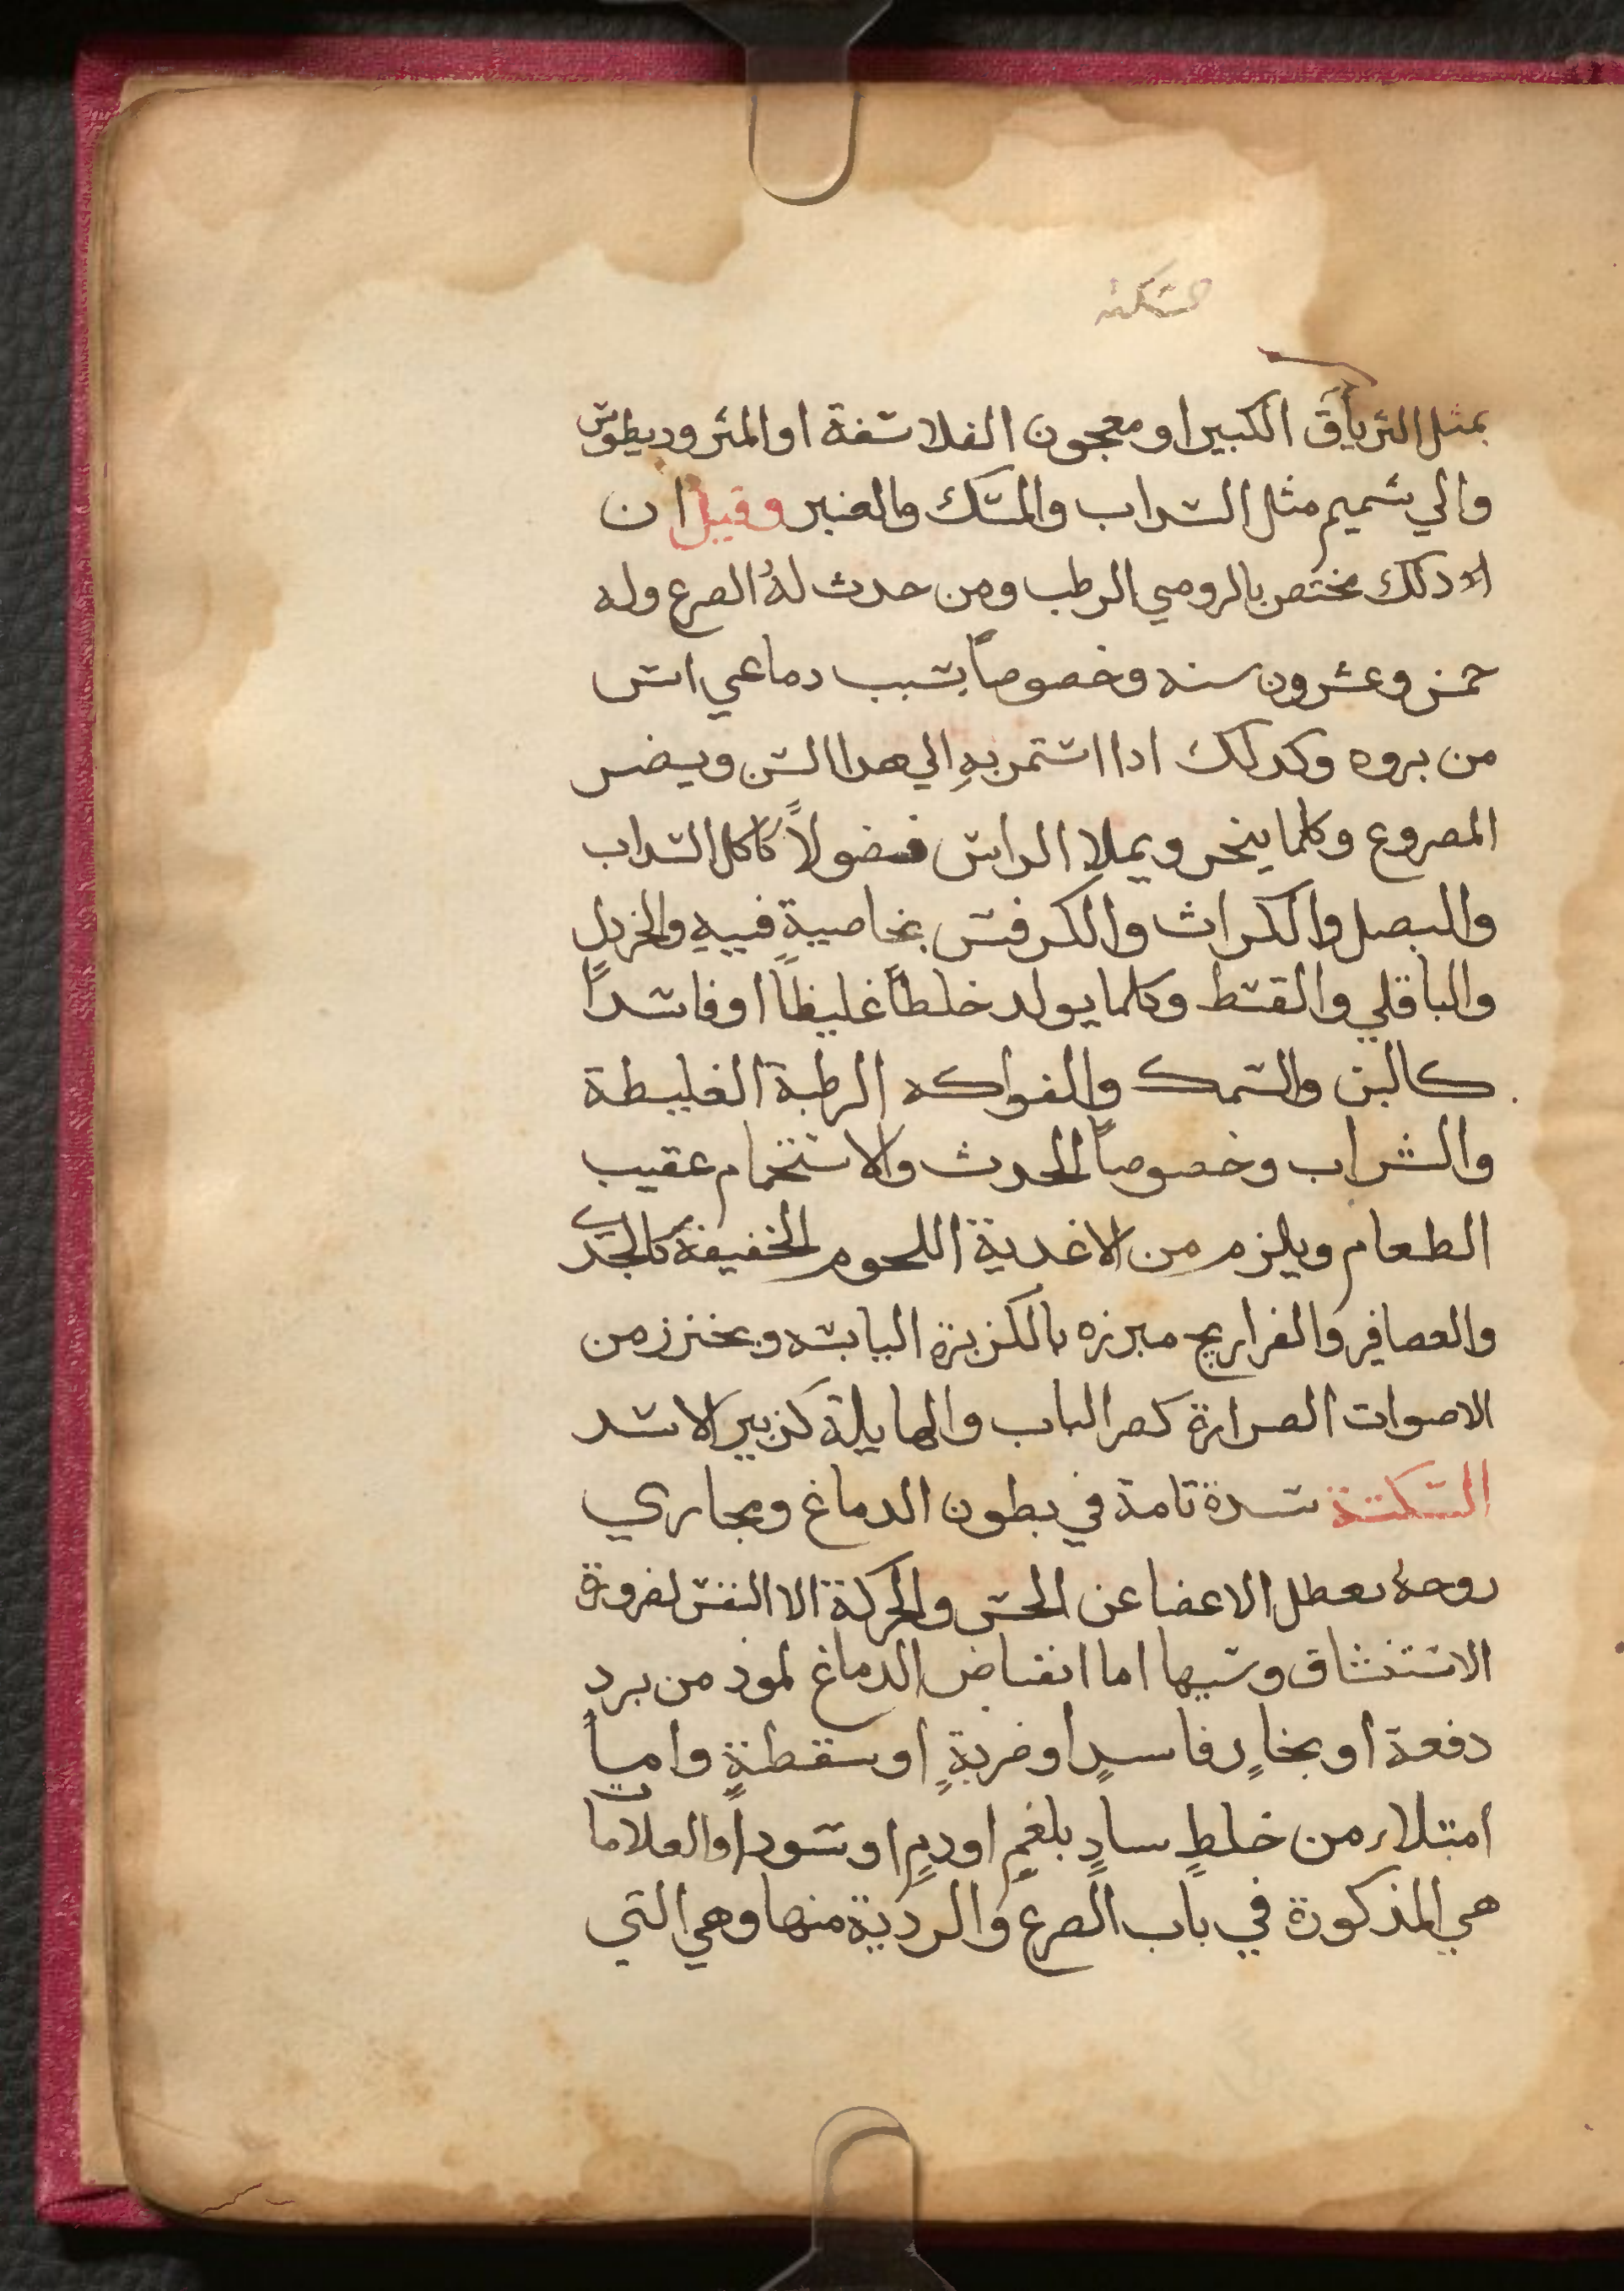 السكته
بمثل الترياق الكبير او معجون الفلاسفة او المثروديطوس
والي شميم مثل السداب والمسك والعنبر وقيل ان
ذلك مختص بالرومي الرطب ومن حدث لهُ الصرع وله
خمس وعشرون سنه وخصوصاً بسبب دماغي ايس
من بروه وكدلك ادا استمر بهِ الي هدا السن ويضر
المصروع وكلما يبخر ويملا الراس فضولاً كاكل السداب
والبصل والكراث والكرفس بخاصيةٍ فييه والخردل
والباقلي والقسط وكلما يولد خلطاً غليظاً او فاسداً
كالبن والسمك والفواكه الرطبة الغليظة
والشراب وخصوصاً الحدث والاستحمام عقيب
الطعام ويلزم من الاغدية اللحوم الخفيفة كالجدي
والعصافير والفراريج مبرزه بالكزبرة اليابسه ويحترز من
الاصوات الصرارة كصر الباب والهايلة كزبير الاسد
السكتة سدة تامة في بطون الدماغ ومجاري
روحهُ تعطل الاعضا عن الحس والحركة الا التنفس لضرورة
الاستنشاق وسببها اما انقباض الدماغ لموذ من برد
دفعة او بخارٍ فاسدٍ او ضربةٍ او سقطةٍ واما
امتلاء من خلطٍ سادٍ بلغمٍ او دمٍ او سودا والعلامات
هي المذكورة في باب الصرع والردية منها وهي التي